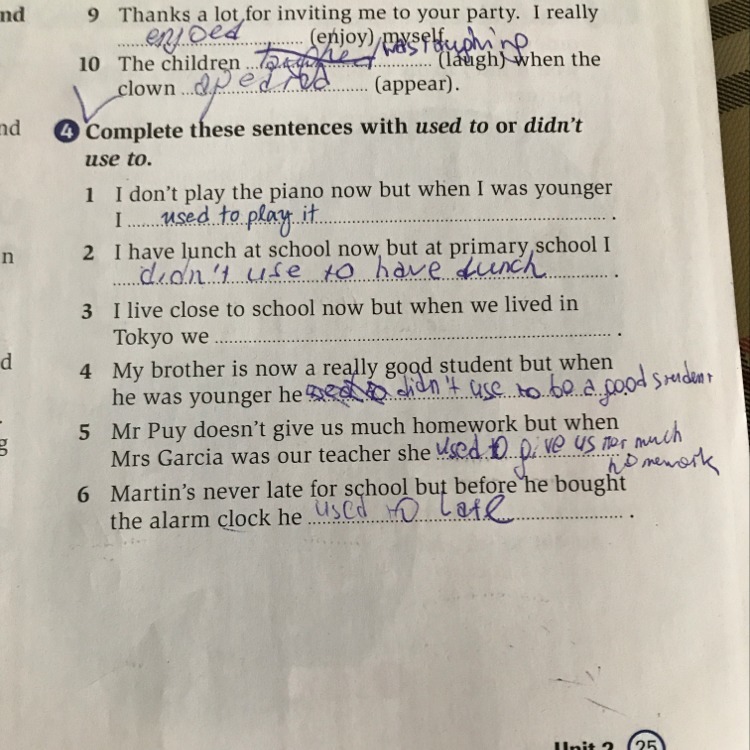 nd
9 Thanks a lot for inviting me to your party. I really
enjoed (enjoy) myself.
10 The children was laughing (laugh) when the
clown apedred (appear).
nd
4 Complete these sentences with used to or didn't
use to.
1 I don't play the piano now but when I was younger
I used to play it .
n
2 I have lunch at school now but at primary school I
didn't use to have lunch .
3 I live close to school now but when we lived in
Tokyo we .
d
4 My brother is now a really good student but when
he was younger he didn't use to be a good student
g
5 Mr Puy doesn't give us much homework but when
Mrs Garcia was our teacher she used to give us much
homework
6 Martin's never late for school but before he bought
the alarm clock he used to late .
Unit 2 25